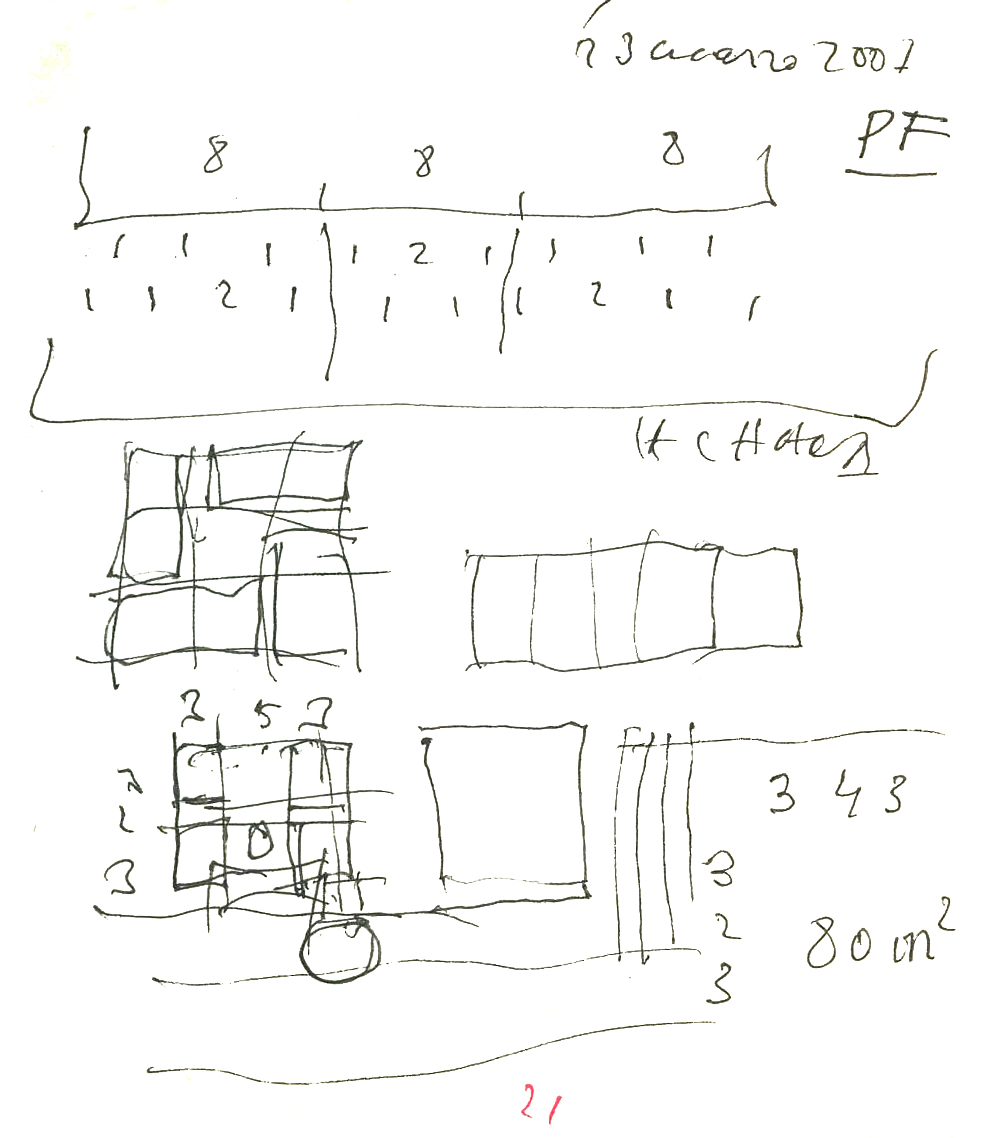 23 marzo 2001
PF
8 8 8
1 1 1 1 2 1 1 1 1
1 1 2 1 1 1 1 2 1 1
3 5 3
2
2
3
0
3 4 3
3
2
3
80 m²
21